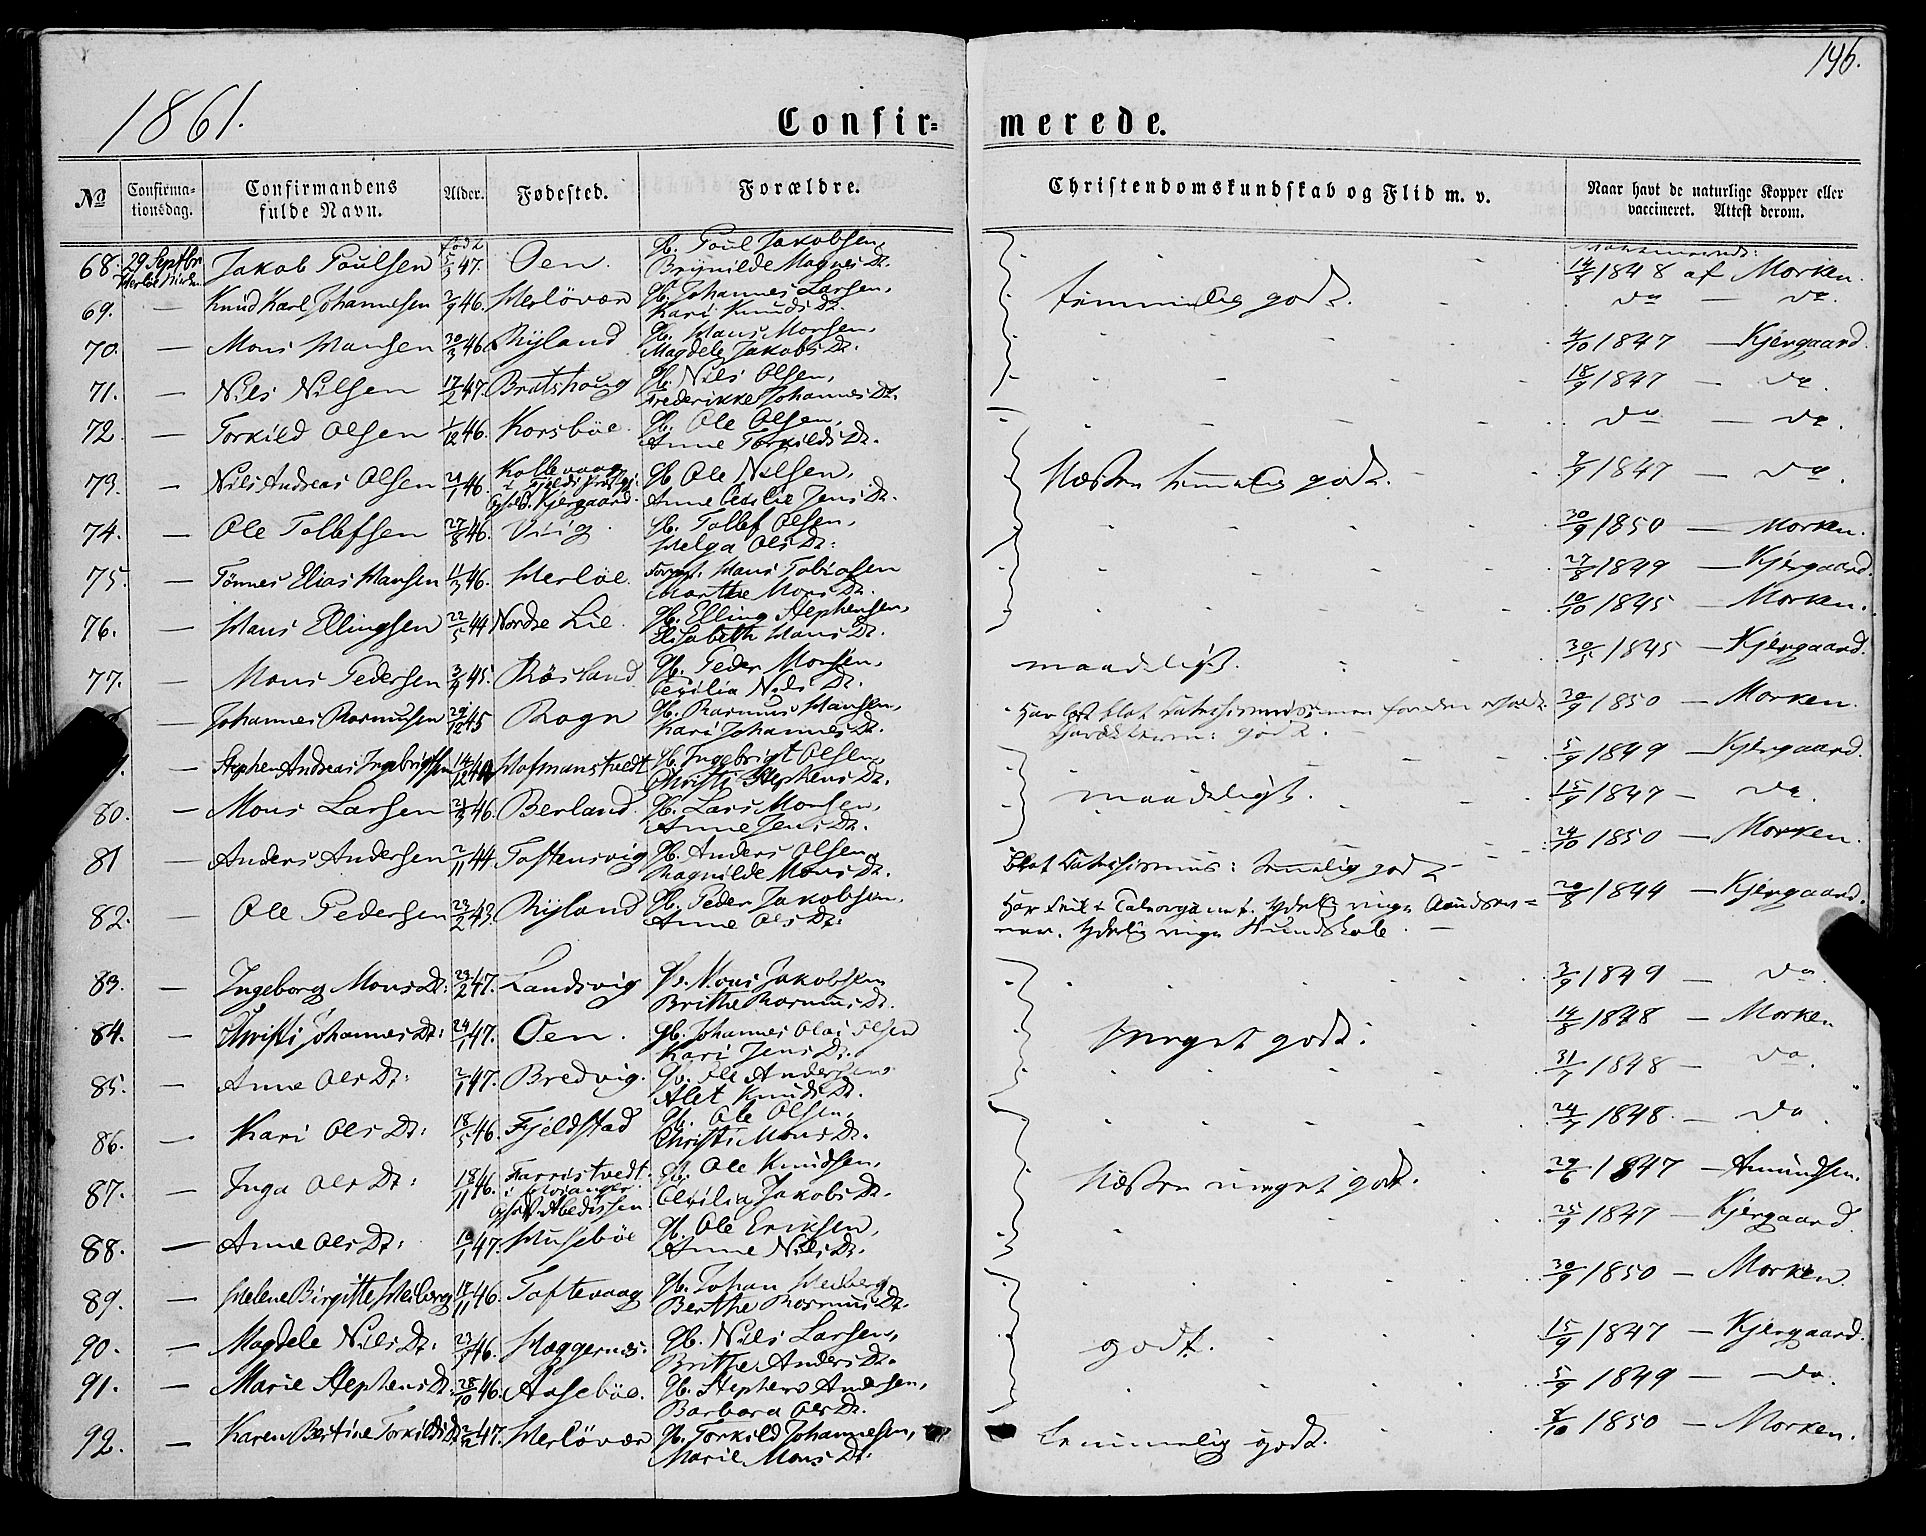 1861.
146.
Confir= merede.
No
Confirma-
tionsdag.
Confirmandens
fulde Navn.
Alder.
Fødested.
Forældre.
Christendomskundskab og Flid m. v.
Naar havt de naturlige Kopper eller
vaccineret. Attest derom.
68. 29 Septbr Jakob Poulsen født 47. Oen. Gb. Poul Jakobsen,
Brynilde Magnes Dt. 14/8 1848 af Morken.
69. — Knud Karl Johannesen 2/9 46. Herlövær Gb. Johannes Larsen,
Kari Knuds Dt. temmelig godt. do — do.
70. — Mons Hansen 30/3 46 Ryland Gb. Hans Monsen,
Magdele Jakobs Dt. 4/10 1847 — Kjergaard.
71. — Nils Nilsen 17/2 47. Bratshoug Gb. Nils Olsen,
Frederikke Johannes Dt. 18/9 1847 — do.
72. — Torkild Olsen 1/12 46. Korsböe. Gb. Ole Olsen,
Anne Torkilds Dt. do — do.
73. — Nils Andreas Olsen 21/1 46. Kollevaag
Gb Ole Nilsen,
Kjergaard. Anne Cecilie Jens Dt. Næsten temmelig godt. 7/9 1847 — do.
74. — Ole Tollefsen 27/8 46. Viig Gb. Tollef Olsen,
Helga Ols Dt: 30/9 1850 — Morken.
75. — Tönnes Elias Hansen 11/3 46. Herlöe. Hans Tobiasen
Marthe Mons Dt. 27/8 1849 — Kjergaard.
76. — Hans Ellingsen 22/5 44 Nordre Lie. Gb. Elling Stephensen,
Elisabeth Hans Dt. 10/10 1845 — Morken.
77. — Mons Pedersen 3/4 45. Røsland Gb. Peder Monsen,
Cecilia Nils Dt. maadeligt. 30/5 1845 — Kjergaard.
Johannes Rasmusen 29/12 45 Rogn Gb. Rasmus Hansen,
Kari Johannes Dt. Har læst blot
godt. 30/9 1850 — Morken.
Stephen Andreas Ingebrigtsen 14/12 Hofmanstvedt Gb. Ingebrigt Olsen,
Christi Stephens Dt. 5/9 1849 — Kjergaard.
80. — Mons Larsen 21/3 46. Berland. Gb. Lars Monsen,
Anne Jens Dt. maadeligt. 15/9 1847 — do.
81 — Anders Andersen 2/11 44 Toftensvig Gb. Anders Olsen,
Ragnilde Mons Dt. Blot Catechismus: temmelig godt 24/10 1850 — Morken.
82. — Ole Pedersen 23/2 43. Ryland Gb. Peder Jakobsen,
Anne Ols Dt. Har feil i Taleorganet. Yderlig ringe Aandsev=
ner. Yderlig ringe Kundskab. 20/8 1844 — Kjergaard.
83. — Ingeborg Mons Dt: 23/2 47. Landsvig Gb. Mons Jakobsen
Brithe Rasmus Dt. 3/9 1849 — do
84. — Christi Johannes Dt: 24/1 47. Oen. Gb. Johannes Olai Olsen
Kari Jens Dt. meget godt: 14/8 1848 — Morken
85. — Anne Ols Dt: 2/1 47. Bredvig. Gb. Ole Andersen
Alet Knuds Dt. 31/7 1848 — do.
86. — Kari Ols Dt: 18/5 46. Fjeldstad Gb. Ole Olsen,
Christi Mons Dt. 24/7 1848. — do
87. — Inga Ols Dt: 18/11 46. Farristvedt Gb. Ole Knudsen,
Cecilia Jakobs Dt. Næsten meget godt. 29/6 1847 — Amundsen.
88. — Anne Ols Dt: 10/1 47. Husebøe Gb. Ole Eriksen,
Anne Nils Dt. 25/9 1847 — Kjergaard
89. — Helene Birgitte Heiberg 18/11 46. Toftevaag Gb. Johan Heiberg
Berthe Rasmus Dt. 30/9 1850 — Morken
90. — Magdele Nils Dt: 23/9 46. Hæggernes. Gb. Nils Larsen,
Brithe Anders Dt. godt. 15/9 1847 — Kjergaard.
91. — Marie Stephens Dt. 28/10 46. Aasebøe. Gb. Stephen Andersen,
Barbara Ols Dt. 5/9 1849 — do.
92. — Karen Bertine Torkilds Dt 47. Herlövær Gb. Torkild Johannesen,
Marie Mons Dt: temmelig godt. 1850 — Morken.